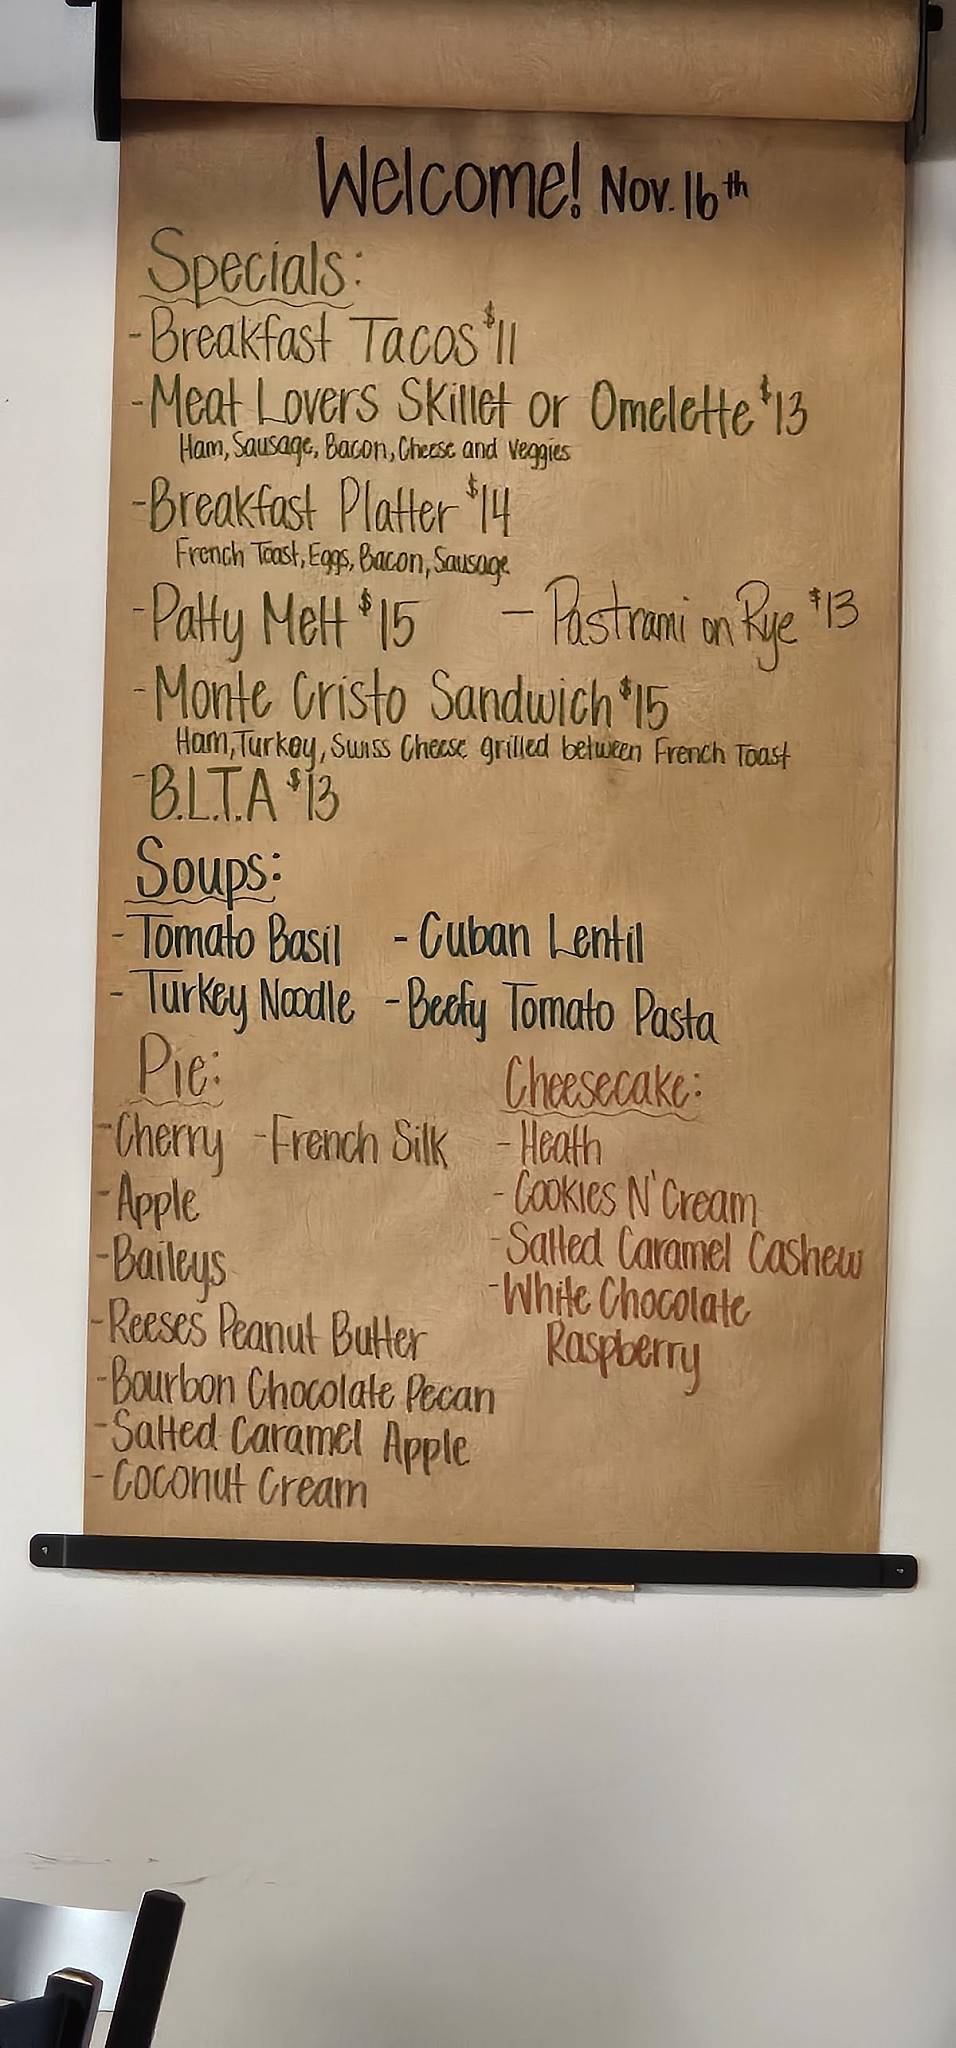 Welcome! Nov. 16th
Specials:
-Breakfast Tacos $11
-Meat Lovers Skillet or Omelette $13
Ham, Sausage, Bacon, Cheese and Veggies
-Breakfast Platter $14
French Toast, Eggs, Bacon, Sausage
-Patty Melt $15 - Pastrami on Rye $13
-Monte Cristo Sandwich $15
Ham, Turkey, Swiss Cheese grilled between French Toast
-B.L.T.A $13
Soups:
- Tomato Basil - Cuban Lentil
- Turkey Noodle - Beefy Tomato Pasta
Pie:
-Cherry -French Silk
-Apple
-Baileys
-Reeses Peanut Butter
-Bourbon Chocolate Pecan
-Salted Caramel Apple
-Coconut Cream
Cheesecake:
-Heath
-Cookies N' Cream
-Salted Caramel Cashew
-White Chocolate
Raspberry